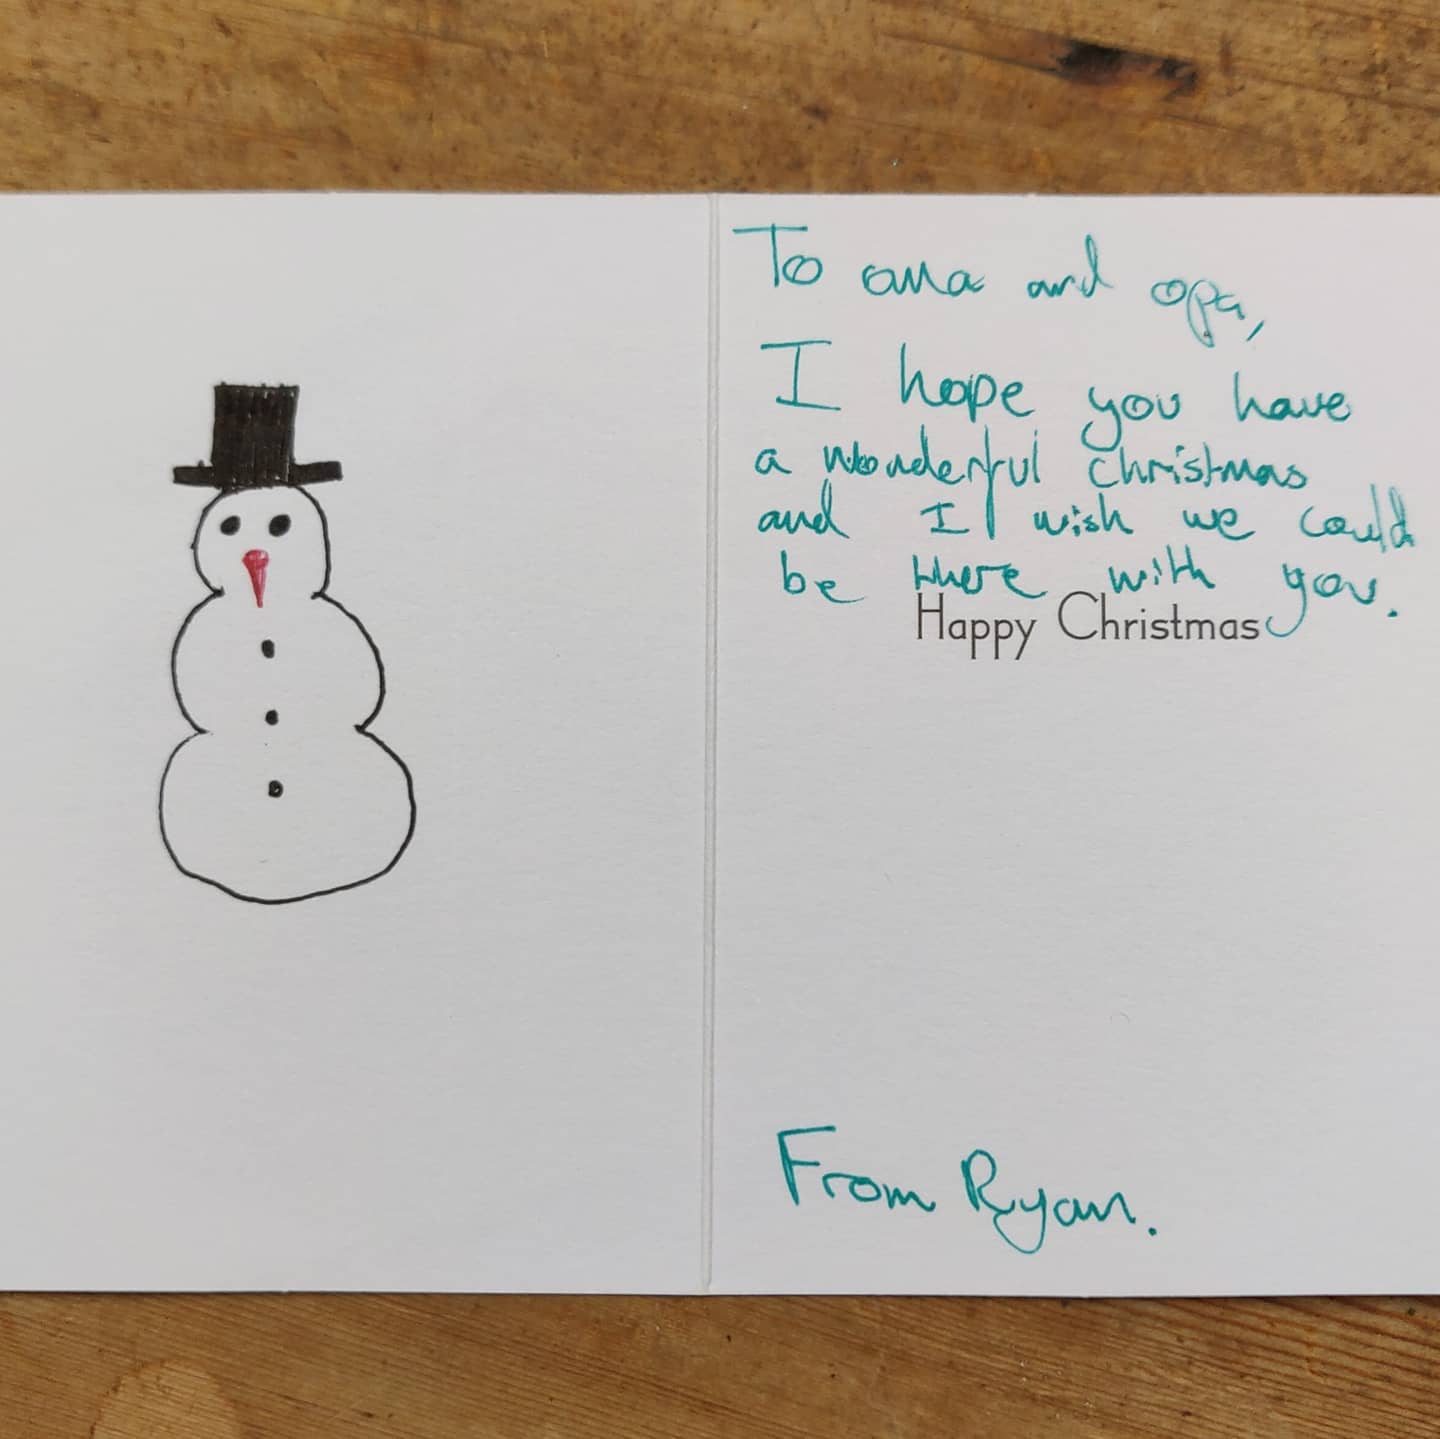 To oma and opa,
I hope you have
a wonderful christmas
and I wish we could
be there with you.
Happy Christmas
From Ryan.